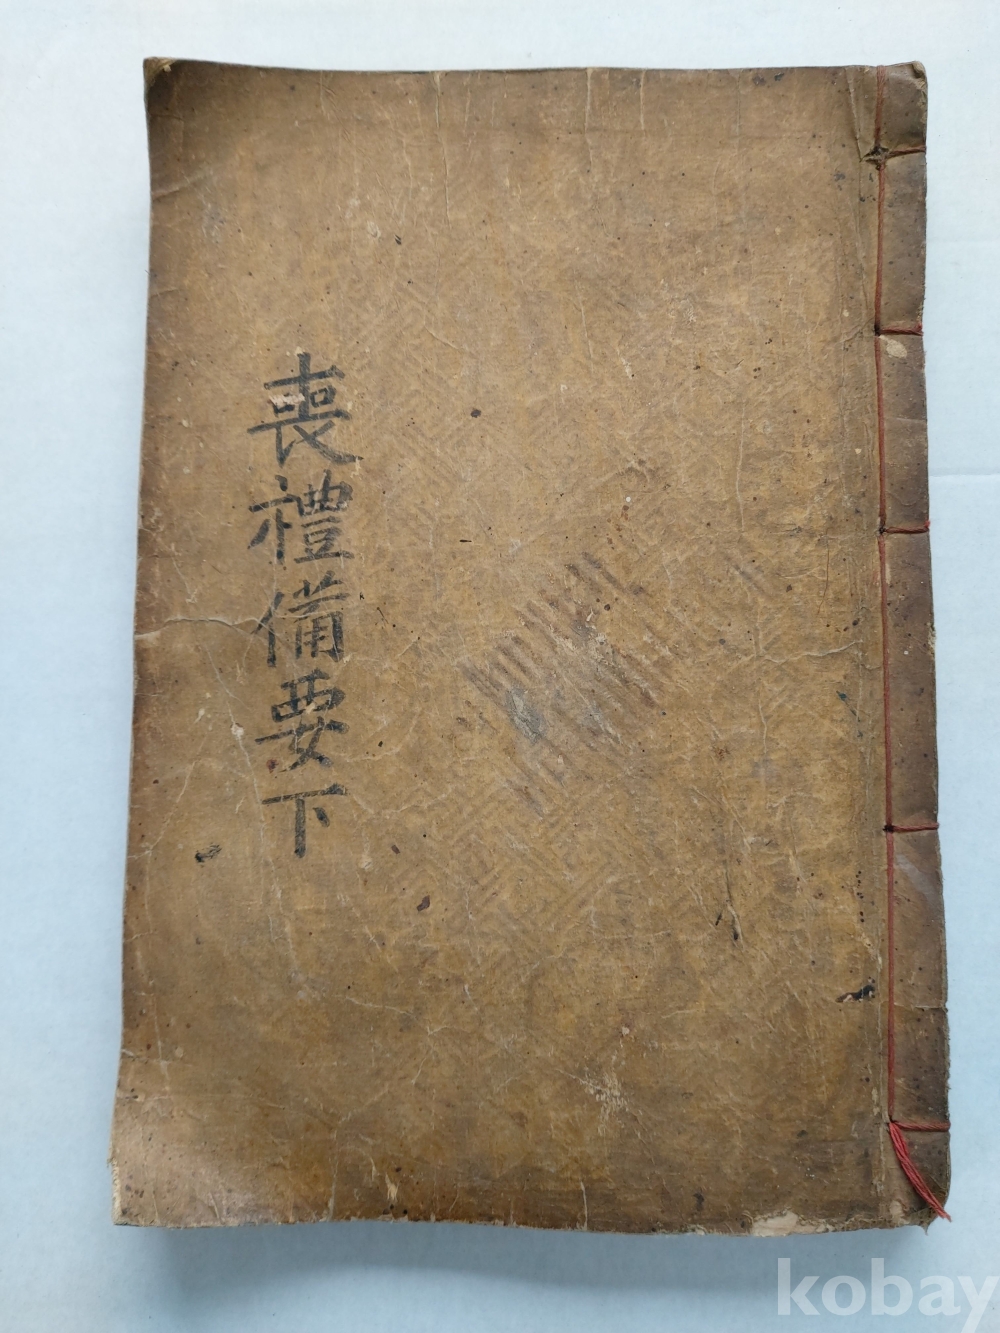 喪禮備要下
kobay